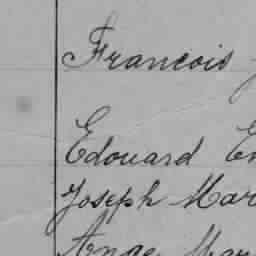 Francois
Edouard
Joseph Mar
Ange Mar